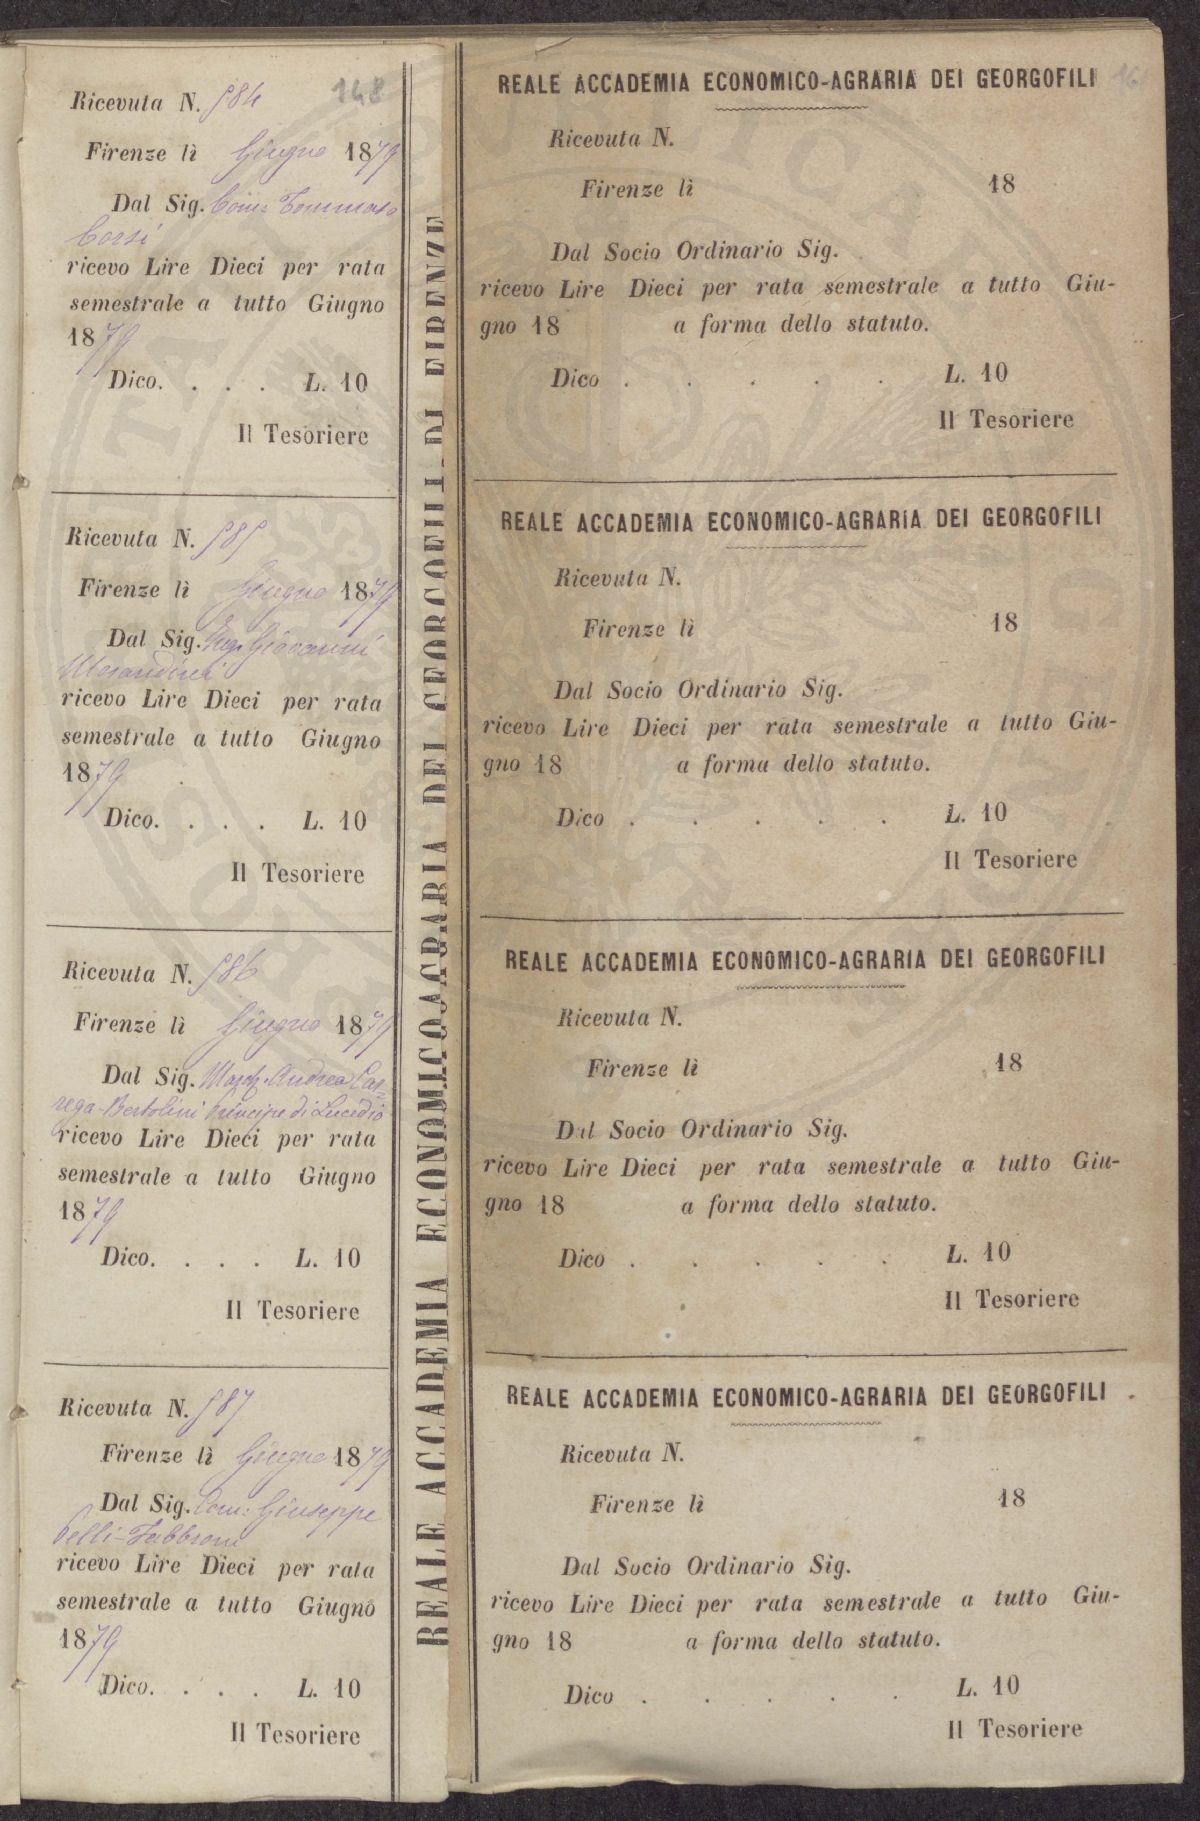 148
Ricevuta N. 584
Firenze lì Giugno 1879
Dal Sig. Com: Tommaso
Corsi
ricevo Lire Dieci per rata
semestrale a tutto Giugno
1879
Dico. . . . L. 10
Il Tesoriere
Ricevuta N. 585
Firenze lì Giugno 1879
Dal Sig. Ing. Giovanni
Morandini
ricevo Lire Dieci per rata
semestrale a tutto Giugno
1879
Dico. . . . L. 10
Il Tesoriere
Ricevuta N. 586
Firenze lì Giugno 1879
Dal Sig. March. Andrea Car=
rega-Bertolini Principe di Lucedio
ricevo Lire Dieci per rata
semestrale a tutto Giugno
1879
Dico. . . . L. 10
Il Tesoriere
Ricevuta N. 587
Firenze lì Giugno 1879
Dal Sig. Com: Giuseppe
Pelli-Fabbroni
ricevo Lire Dieci per rata
semestrale a tutto Giugno
1879
Dico. . . . L. 10
Il Tesoriere
REALE ACCADEMIA ECONOMICO AGRARIA DEI GEORGOFILI DI FIRENZE
REALE ACCADEMIA ECONOMICO-AGRARIA DEI GEORGOFILI
Ricevuta N.
Firenze lì 18
Dal Socio Ordinario Sig.
ricevo Lire Dieci per rata semestrale a tutto Giu-
gno 18 a forma dello statuto.
Dico . . . . . L. 10
Il Tesoriere
REALE ACCADEMIA ECONOMICO-AGRARIA DEI GEORGOFILI
Ricevuta N.
Firenze lì 18
Dal Socio Ordinario Sig.
ricevo Lire Dieci per rata semestrale a tutto Giu-
gno 18 a forma dello statuto.
Dico . . . . . L. 10
Il Tesoriere
REALE ACCADEMIA ECONOMICO-AGRARIA DEI GEORGOFILI
Ricevuta N.
Firenze lì 18
Dal Socio Ordinario Sig.
ricevo Lire Dieci per rata semestrale a tutto Giu-
gno 18 a forma dello statuto.
Dico . . . . . L. 10
Il Tesoriere
REALE ACCADEMIA ECONOMICO-AGRARIA DEI GEORGOFILI
Ricevuta N.
Firenze lì 18
Dal Socio Ordinario Sig.
ricevo Lire Dieci per rata semestrale a tutto Giu-
gno 18 a forma dello statuto.
Dico . . . . . L. 10
Il Tesoriere